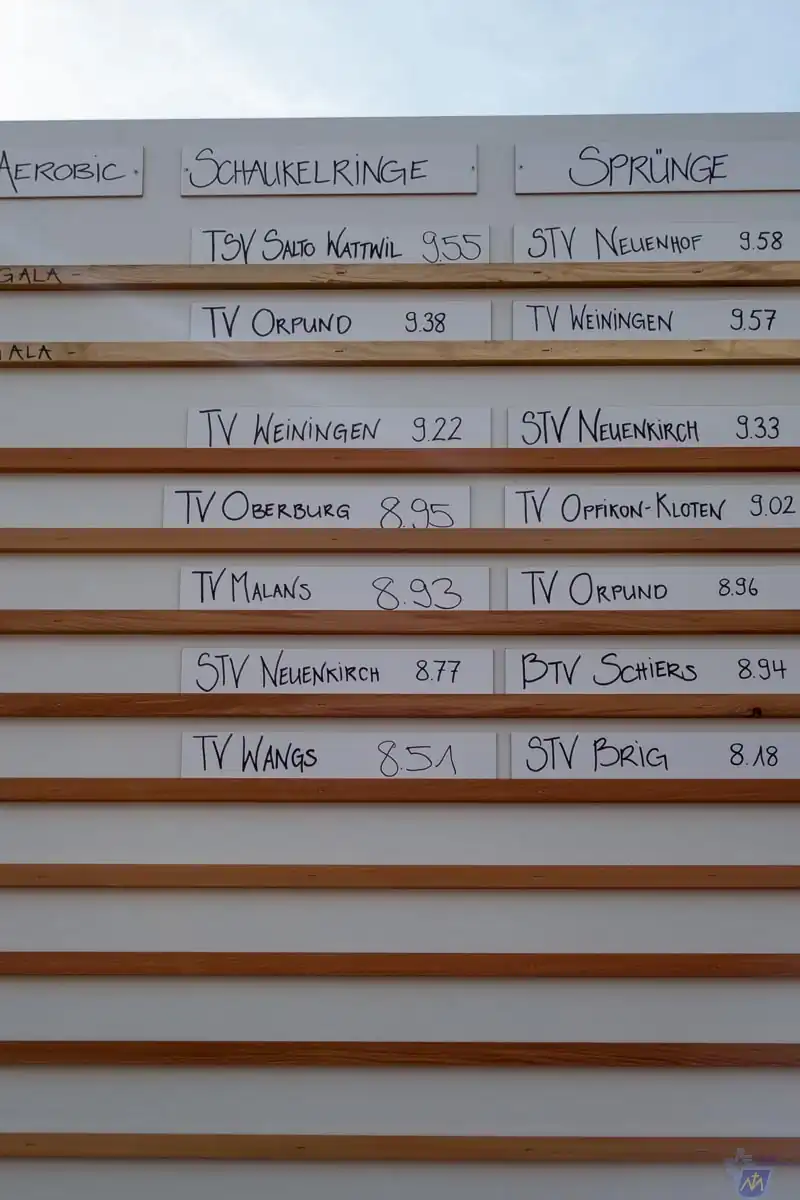 AEROBIC SCHAUKELRINGE SPRÜNGE
TSV SALTO WATTWIL 9.55 STV NEUENHOF 9.58
GALA -
TV ORPUND 9.38 TV WEININGEN 9.57
GALA -
TV WEININGEN 9.22 STV NEUENKIRCH 9.33
TV OBERBURG 8.95 TV OPFIKON-KLOTEN 9.02
TV MALANS 8.93 TV ORPUND 8.96
STV NEUENKIRCH 8.77 BTV SCHIERS 8.94
TV WANGS 8.51 STV BRIG 8.18